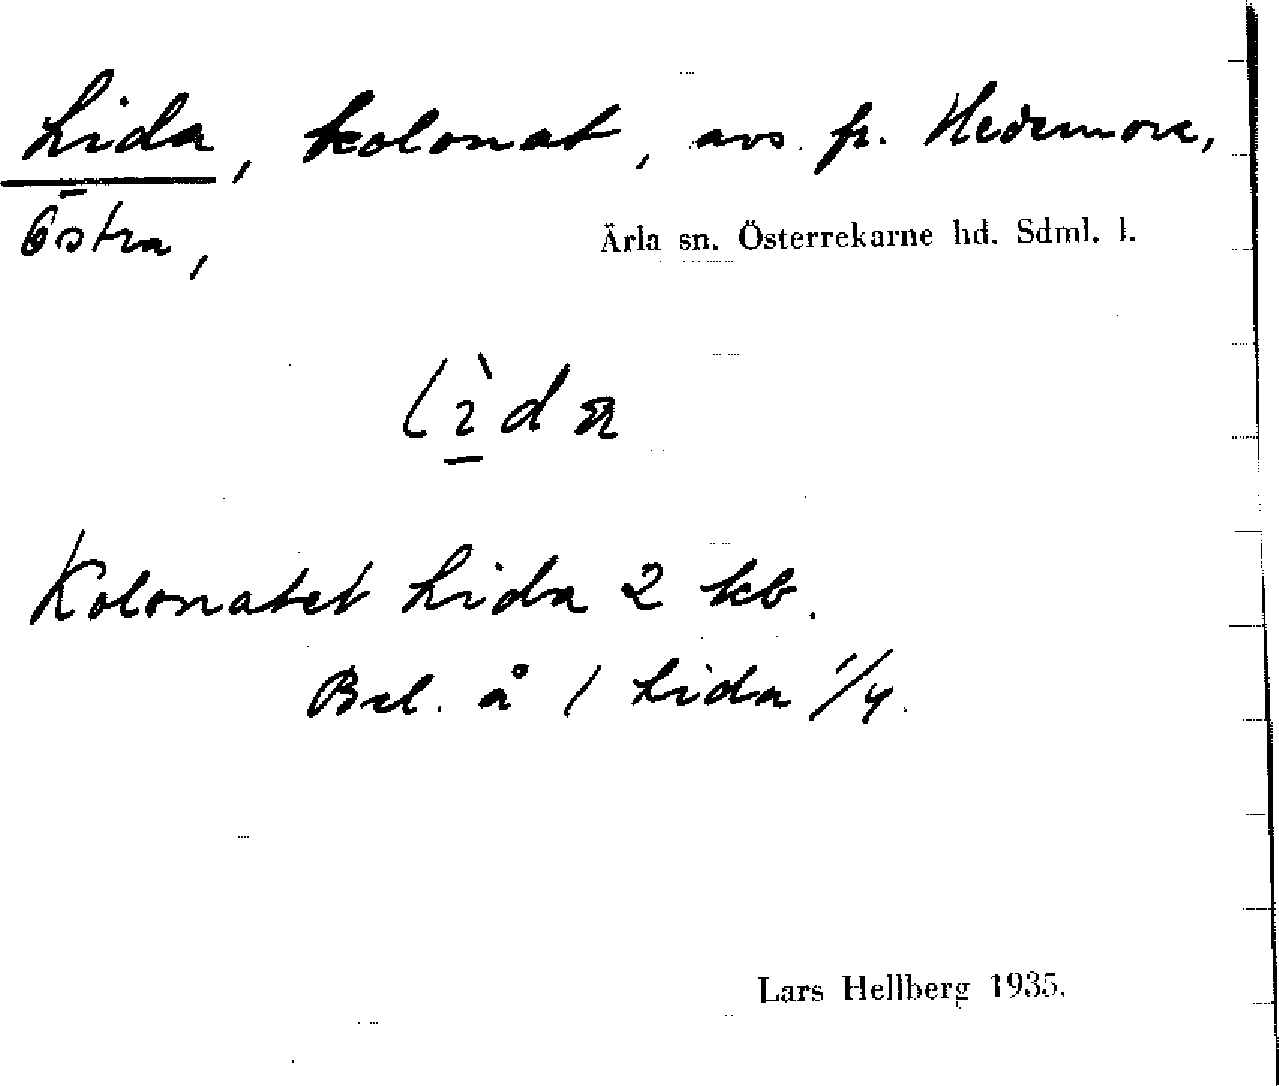 Lida, kolonat, avs. fr. Hedemora,
Östra,
Ärla sn. Österrekarne hd. Sdml. l.
Kolonatet Lida 2 kb.
Bel. å 1 Lida 1/4.
Lars Hellberg 1935.